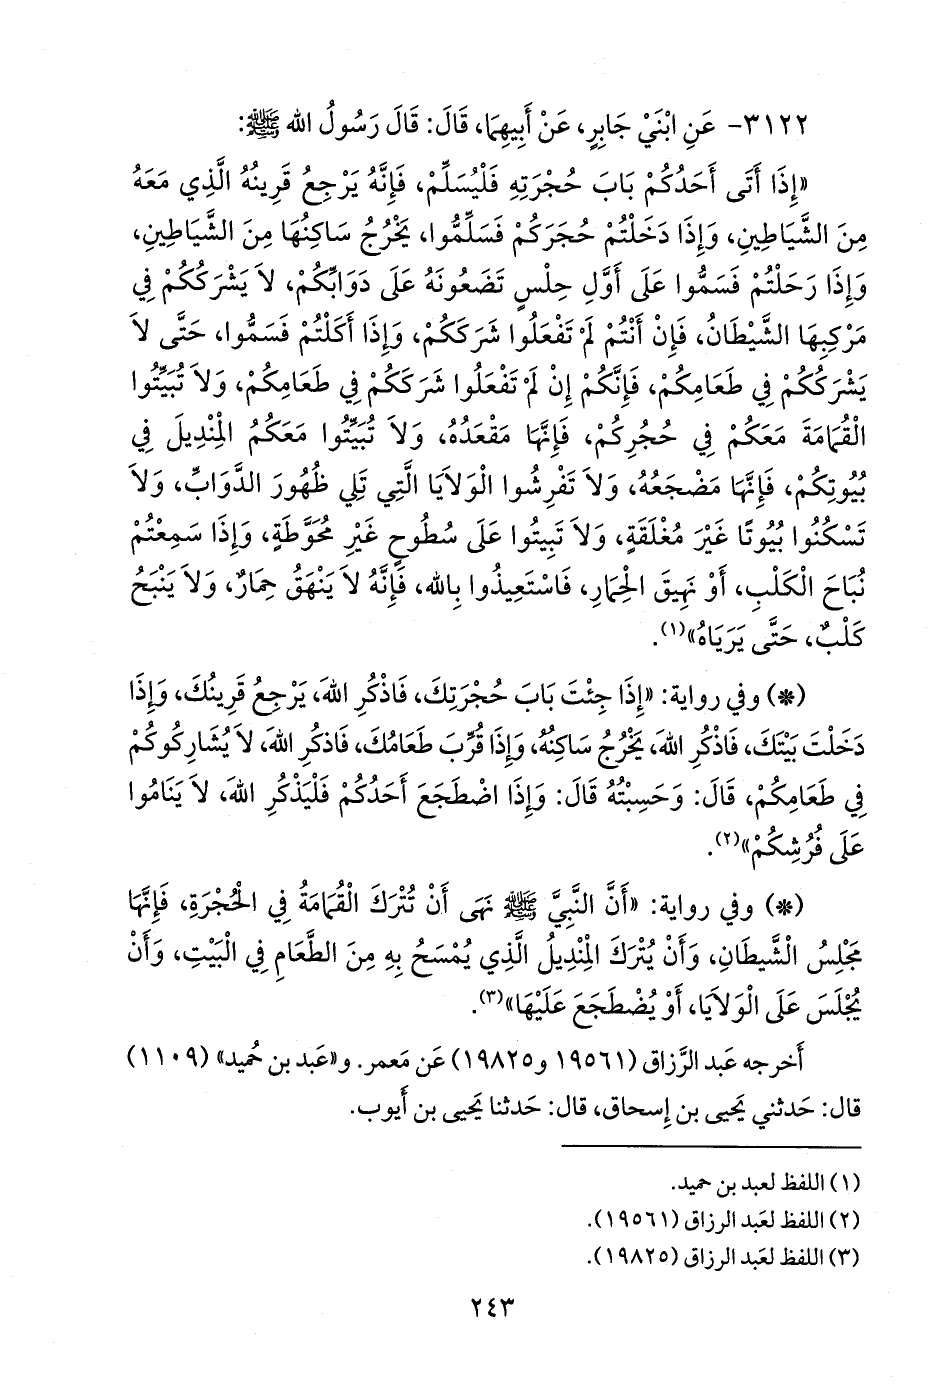 ٣١٢٢- عَنِ ابْنَيْ جَابِرٍ، عَنْ أَبِيهِمَا، قَالَ: قَالَ رَسُولُ الله ﷺ:
«إِذَا أَتَى أَحَدُكُمْ بَابَ حُجْرَتِهِ فَلْيُسَلِّمْ، فَإِنَّهُ يَرْجِعُ قَرِينُهُ الَّذِي مَعَهُ
مِنَ الشَّيَاطِينِ، وَإِذَا دَخَلْتُمْ حُجَرَكُمْ فَسَلِّمُوا، يَخْرُجُ سَاكِنُهَا مِنَ الشَّيَاطِينِ،
وَإِذَا رَحَلْتُمْ فَسَمُّوا عَلَى أَوَّلِ حِلْسٍ تَضَعُونَهُ عَلَى دَوَابِّكُمْ، لاَ يَشْرَكُكُمْ فِي
مَرْكِبِهَا الشَّيْطَانُ، فَإِنْ أَنْتُمْ لَمْ تَفْعَلُوا شَرَكَكُمْ، وَإِذَا أَكَلْتُمْ فَسَمُّوا، حَتَّى لاَ
يَشْرَكُكُمْ فِي طَعَامِكُمْ، فَإِنَّكُمْ إِنْ لَمْ تَفْعَلُوا شَرَكَكُمْ فِي طَعَامِكُمْ، وَلاَ تُبَيِّتُوا
الْقُمَامَةَ مَعَكُمْ فِي حُجُرِكُمْ، فَإِنَّهَا مَقْعَدُهُ، وَلاَ تُبَيِّتُوا مَعَكُمُ الْمِنْدِيلَ فِي
بُيُوتِكُمْ، فَإِنَّهَا مَضْجَعُهُ، وَلاَ تَفْرِشُوا الْوَلاَيَا الَّتِي تَلِي ظُهُورَ الدَّوَابِّ، وَلاَ
تَسْكُنُوا بُيُوتًا غَيْرَ مُغْلَقَةٍ، وَلاَ تَبِيتُوا عَلَى سُطُوحٍ غَيْرِ مُحَوَّطَةٍ، وَإِذَا سَمِعْتُمْ
نُبَاحَ الْكَلْبِ، أَوْ نَهِيقَ الْحِمَارِ، فَاسْتَعِيذُوا بِالله، فَإِنَّهُ لاَ يَنْهَقُ حِمَارٌ، وَلاَ يَنْبَحُ
كَلْبٌ، حَتَّى يَرَيَاهُ»(١).
(*) وفي رواية: «إِذَا جِئْتَ بَابَ حُجْرَتِكَ، فَاذْكُرِ اللهَ، يَرْجِعُ قَرِينُكَ، وَإِذَا
دَخَلْتَ بَيْتَكَ، فَاذْكُرِ اللهَ، يَخْرُجُ سَاكِنُهُ، وَإِذَا قُرِّبَ طَعَامُكَ، فَاذكُرِ اللهَ، لاَ يُشَارِكُوكُمْ
فِي طَعَامِكُمْ، قَالَ: وَحَسِبْتُهُ قَالَ: وَإِذَا اضْطَجَعَ أَحَدُكُمْ فَلْيَذْكُرِ اللهَ، لاَ يَنَامُوا
عَلَى فُرُشِكُمْ»(٢).
(*) وفي رواية: «أَنَّ النَّبِيَّ ﷺ نَهَى أَنْ تُتْرَكَ الْقُمَامَةُ فِي الْحُجْرَةِ، فَإِنَّهَا
مَجْلِسُ الْشَّيطَانِ، وَأَنْ يُتْرَكَ الْمِنْدِيلُ الَّذِي يُمْسَحُ بِهِ مِنَ الطَّعَامِ فِي الْبَيْتِ، وَأَنْ
يُجْلَسَ عَلَى الْوَلاَيَا، أَوْ يُضْطَجَعَ عَلَيْهَا»(٣).
أَخرجه عَبد الرَّزاق (١٩٥٦١ و١٩٨٢٥) عَن مَعمر. و«عَبد بن حُميد» (١١٠٩)
قال: حَدثني يَحيى بن إِسحاق، قال: حَدثنا يَحيى بن أَيوب.
(١) اللفظ لعبد بن حميد.
(٢) اللفظ لعَبد الرزاق (١٩٥٦١).
(٣) اللفظ لعَبد الرزاق (١٩٨٢٥).
٢٤٣